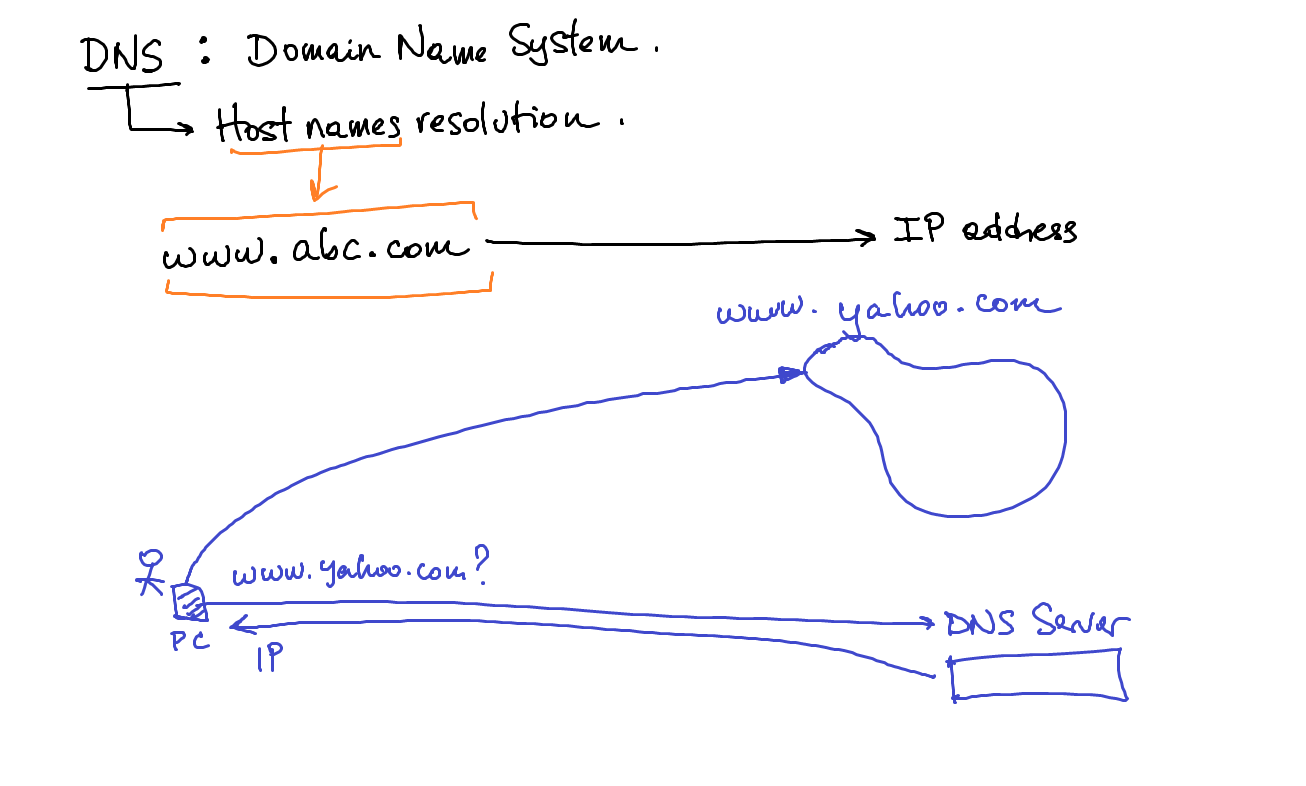 DNS : Domain Name System.
Host names resolution.
www.abc.com
IP address
www.yahoo.com
www.yahoo.com?
DNS Server
PC
IP